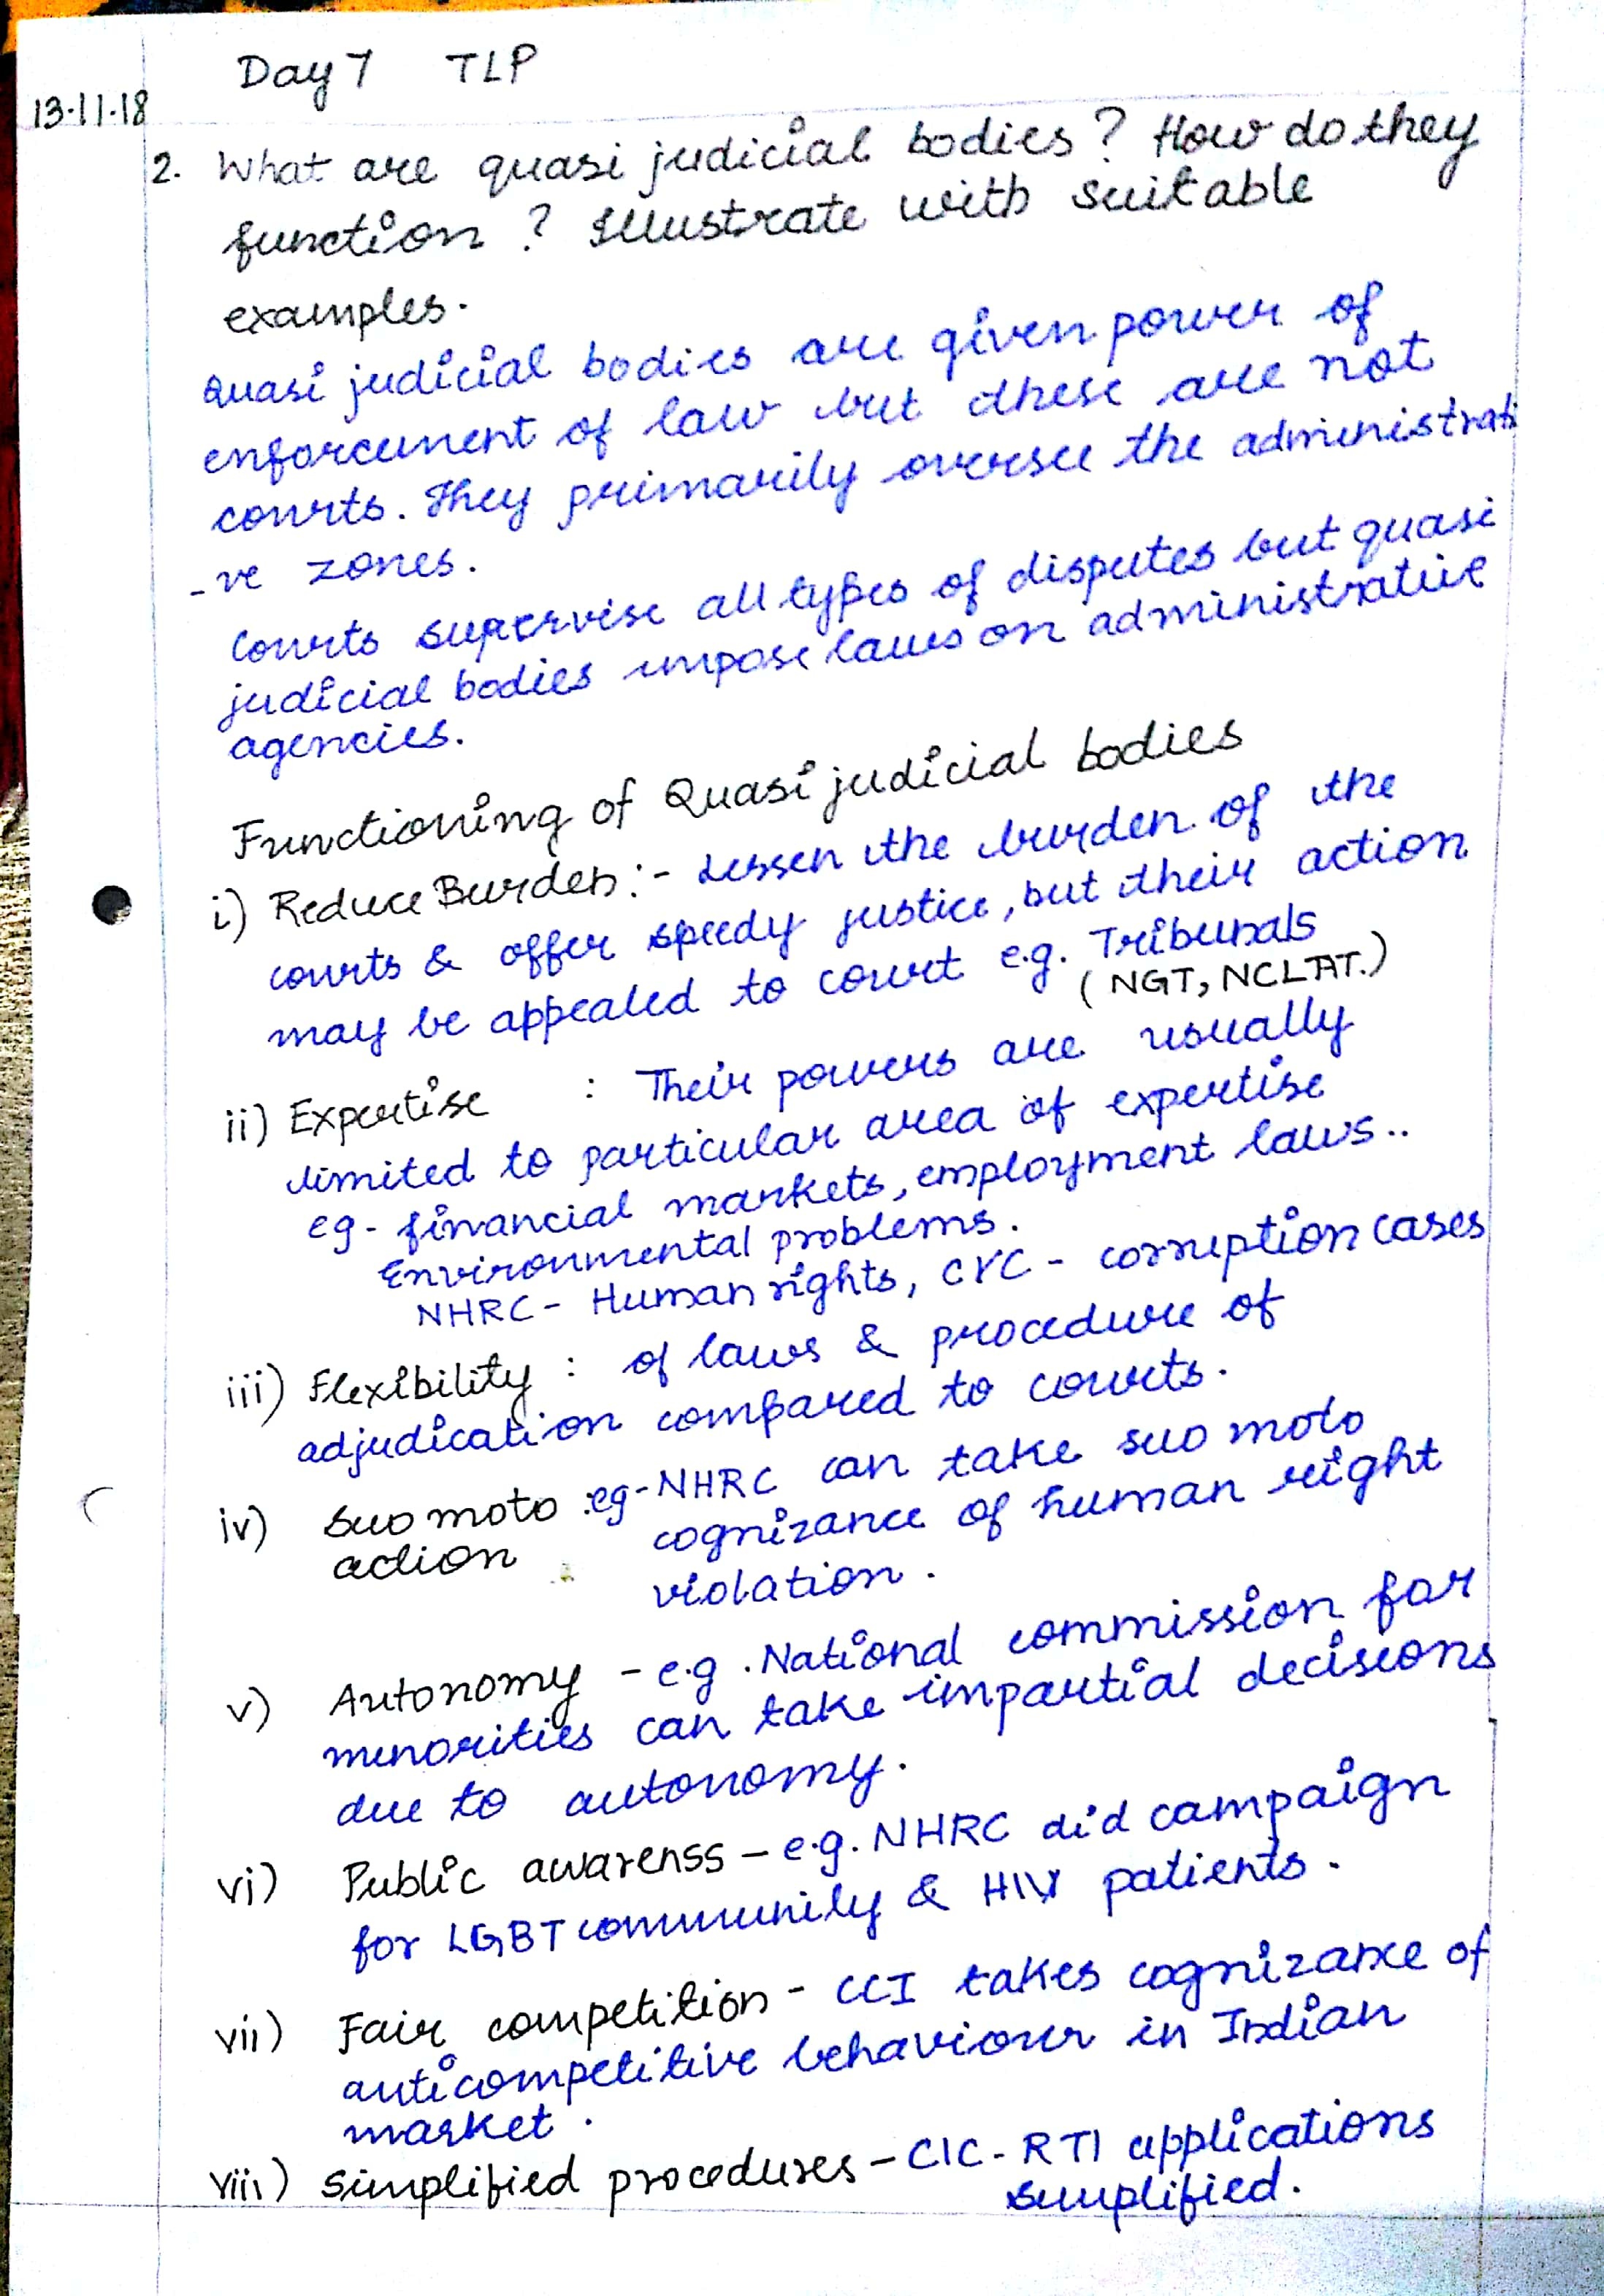 Day 7 TLP
13.11.18
2. What are quasi judicial bodies? How do they
function? Illustrate with suitable
examples.
Quasi judicial bodies are given power of
enforcement of law but these are not
courts. They primarily oversee the administrati
-ve zones.
Courts supervise all types of disputes but quasi
judicial bodies impose laws on administrative
agencies.
Functioning of Quasi judicial bodies
i) Reduce Burden:- Lessen the burden of the
courts & offer speedy justice, but their action
may be appealed to court e.g. Tribunals
(NGT, NCLTAT.)
ii) Expertise : Their powers are usually
limited to particular area of expertise
eg- financial markets, employment laws..
Environmental problems.
NHRC- Human rights, CVC - corruption cases
iii) Flexibility : of laws & procedure of
adjudication compared to courts.
iv) Suo moto :eg-NHRC can take suo moto
action cognizance of human right
violation.
v) Autonomy - e.g. National commission for
minorities can take impartial decisions
due to autonomy.
vi) Public awarenss - e.g. NHRC did campaign
for LGBT community & HIV patients.
vii) Fair competition - CCI takes cognizance of
anticompetitive behaviour in Indian
market.
viii) Simplified procedures - CIC - RTI applications
simplified.